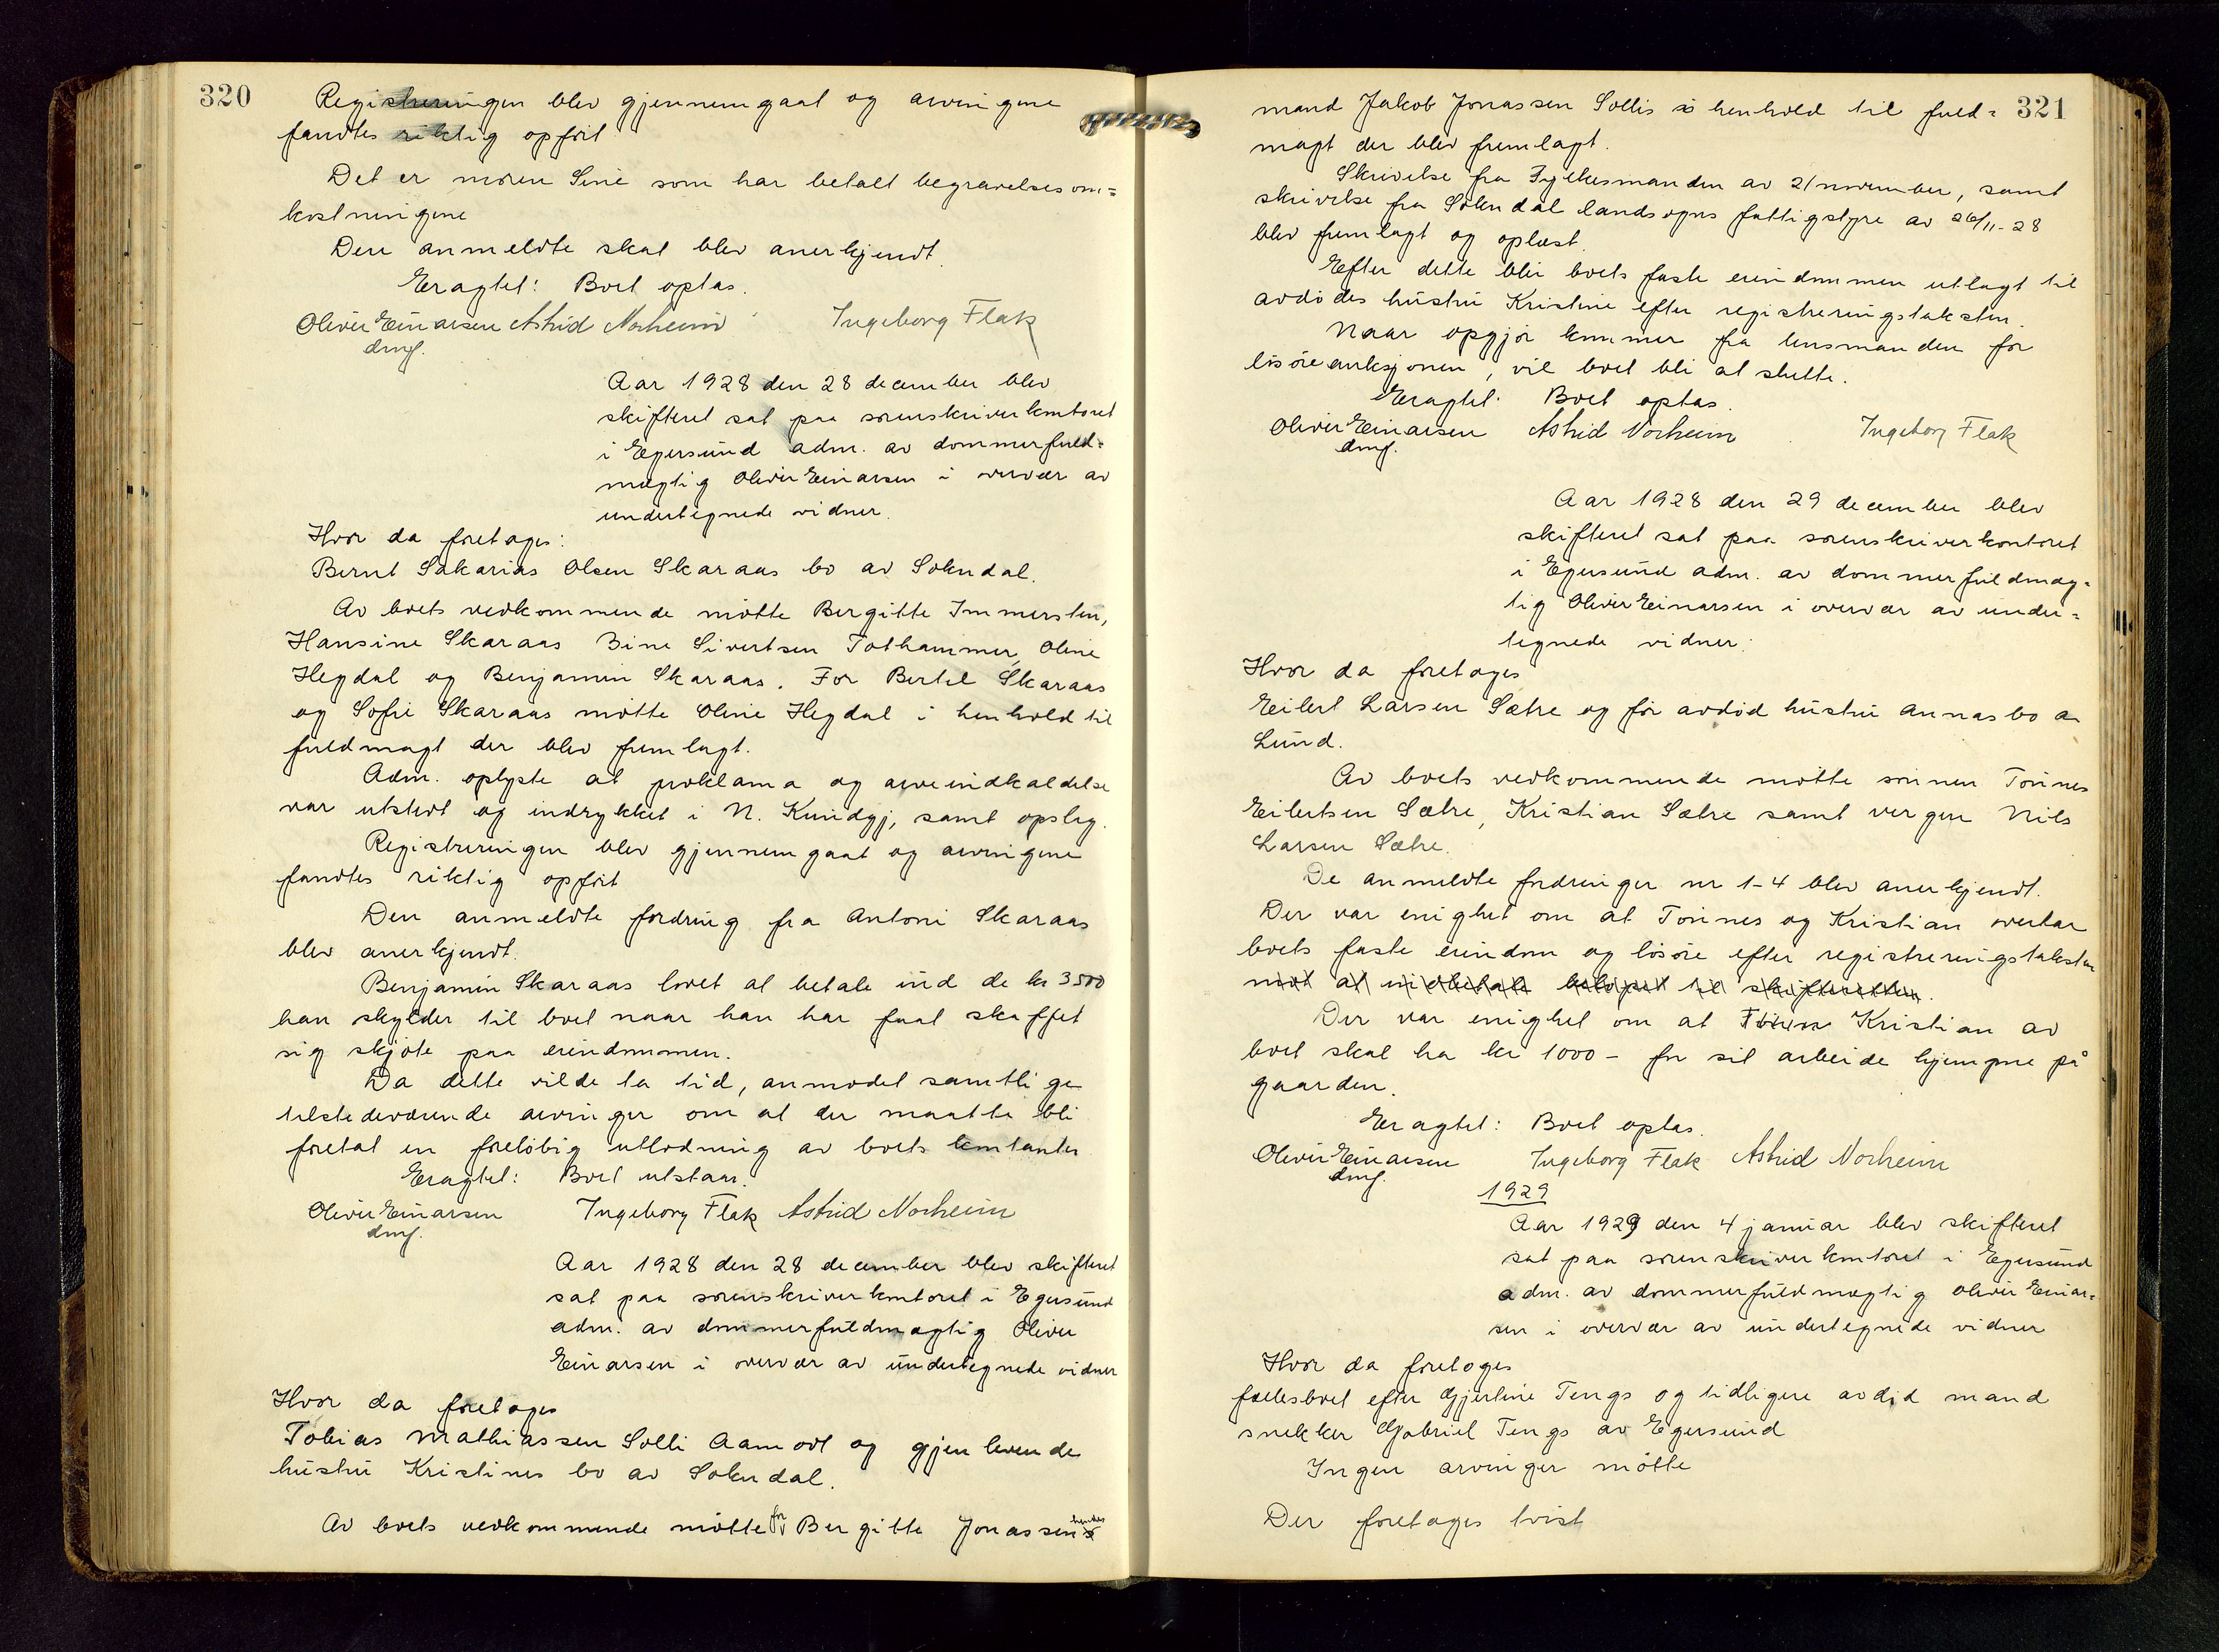 320
Registreringen blev gjennemgaat og arvingene
fandtes riktig opført
Det er moren Sine som har betalt begravelsesom=
kostningene
Den anmeldte skat blev anerkjendt.
Eragtet: Boet optas.
Oliver Einarsen Astrid Norheim Ingeborg Flak
dmf.
Aar 1928 den 28 december blev
skifteret sat paa sorenskriverkontoret
i Egersund adm. av dommerfuld=
mægtig Oliver Einarsen i overvær av
undertegnede vidner.
Hvor da foretoges:
Bernt Sakarias Olsen Skaraas bo av Sokndal.
Av boets vedkommende møtte Bergitte Immerstein,
Hansine Skaraas Bine Sivertsen Tothammer, Oline
Hegdal og Benjamin Skaraas. For Bertel Skaraas
og Sofie Skaraas møtte Oline Hegdal i henhold til
fuldmagt der blev fremlagt.
Adm. oplyste at proklama og arveindkaldelse
var utstedt og indrykket i N. Kundgj, samt opslag.
Registreringen blev gjennemgaat og arvingene
fandtes riktig opført
Den anmeldte fordring fra Antoni Skaraas
blev anerkjendt.
Benjamin Skaraas lovet at betale ind de kr 3500
han skylder til boet naar han har faat skaffet
sig skjøte paa eiendommen.
Da dette vilde ta tid, anmodet samtlige
tilstedeværende arvinger om at der maatte bli
foretat en foreløbig utlodning av boets kontanter
Eragtet: Boet utstaar.
Oliver Einarsen Ingeborg Flak Astrid Norheim
dmf.
Aar 1928 den 28 december blev skifteret
sat paa sorenskriverkontoret i Egersund
adm. av dommerfuldmægtig Oliver
Einarsen i overvær av undertegnede vidner
Hvor da foretoges
Tobias Mathiassen Solli Aamodt og gjenlevende
hustru Kristines bo av Sokndal.
Av boets vedkommende møtte for Bergitte Jonassens hendes
321
mand Jakob Jonassen Sollis i henhold til fuld=
magt der blev fremlagt.
Skrivelse fra Fylkesmanden av 21 november, samt
skrivelse fra Sokndal landsogns fattigstyre av 26/11-28
blev fremlagt og oplæst.
Efter dette blir boets faste eiendommen utlagt til
avdødes hustru Kristine efter registreringstaksten.
Naar opgjør kommer fra lensmanden for
løsøreauksjonen, vil boet bli at slutte.
Eragtet: Boet optas.
Oliver Einarsen Astrid Norheim Ingeborg Flak
dmf.
Aar 1928 den 29 december blev
skifteret sat paa sorenskriverkontoret
i Egersund adm. av dommerfuldmæg=
tig Oliver Einarsen i overvær av under=
tegnede vidner.
Hvor da foretoges
Eilert Larsen Sætre og før avdød hustru Annas bo av
Lund.
Av boets vedkommende møtte sønnen Tønnes
Eilertsen Sætre, Kristian Sætre samt vergen Nils
Larsen Sætre.
De anmeldte fordringer nr 1-4 blev anerkjendt.
Der var enighet om at Tønnes og Kristian overtar
boets faste eiendom og løsøre efter registreringstaksten
mot at indbetale beløpet til skifteretten.
Der var enighet om at Tønnes Kristian av
boet skal ha kr 1000 - for sit arbeide hjemme på
gaarden.
Eragtet: Boet optas.
Oliver Einarsen Ingeborg Flak Astrid Norheim
dmf.
1929
Aar 1929 den 4 januar blev skifteret
sat paa sorenskriverkontoret i Egersund
adm. av dommerfuldmægtig Oliver Einar=
sen i overvær av undertegnede vidner
Hvor da foretoges
fællesboet efter Gjertine Tengs og tidligere avdød mand
snekker Gabriel Tengs av Egersund
Ingen arvinger møtte
Der foretoges tvist